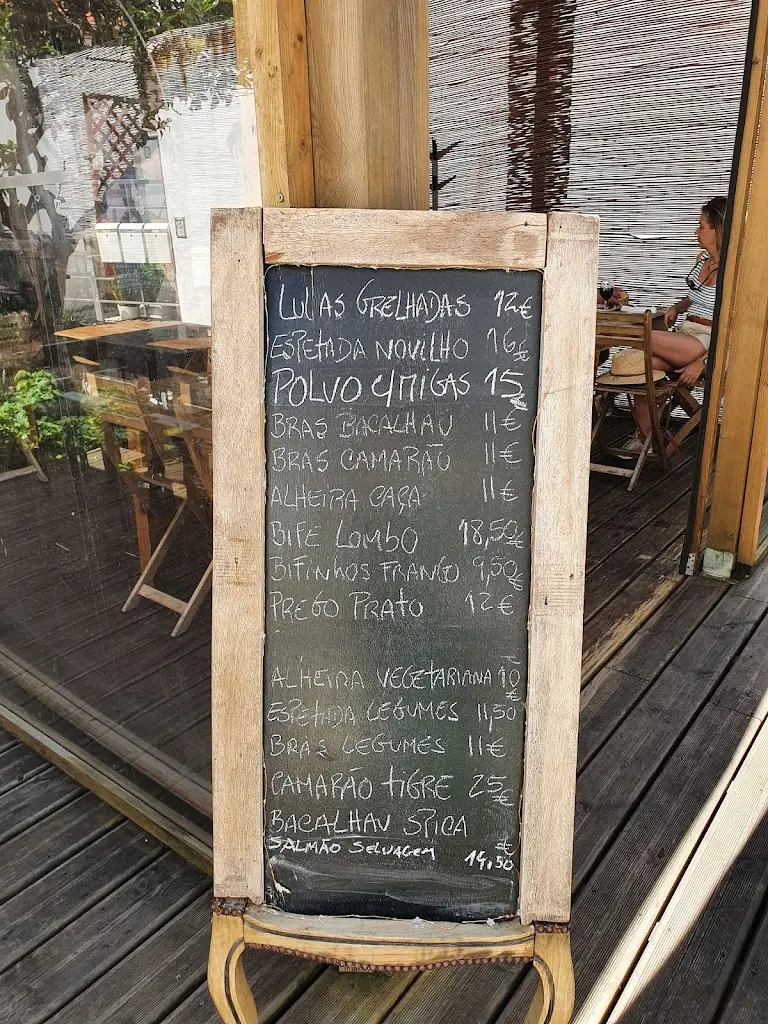 LULAS GRELHADAS 12€
ESPETADA NOVILHO 16€
POLVO C/MIGAS 15€
BRAS BACALHAU 11€
BRAS CAMARÃO 11€
ALHEIRA CAÇA 11€
BIFE LOMBO 18,50€
BIFINHOS FRANGO 9,50€
PREGO PRATO 12€
ALHEIRA VEGETARIANA 10€
ESPETADA LEGUMES 11,50
BRAS LEGUMES 11€
CAMARÃO TIGRE 25€
BACALHAU SPICA
SALMÃO SELVAGEM 14,50€